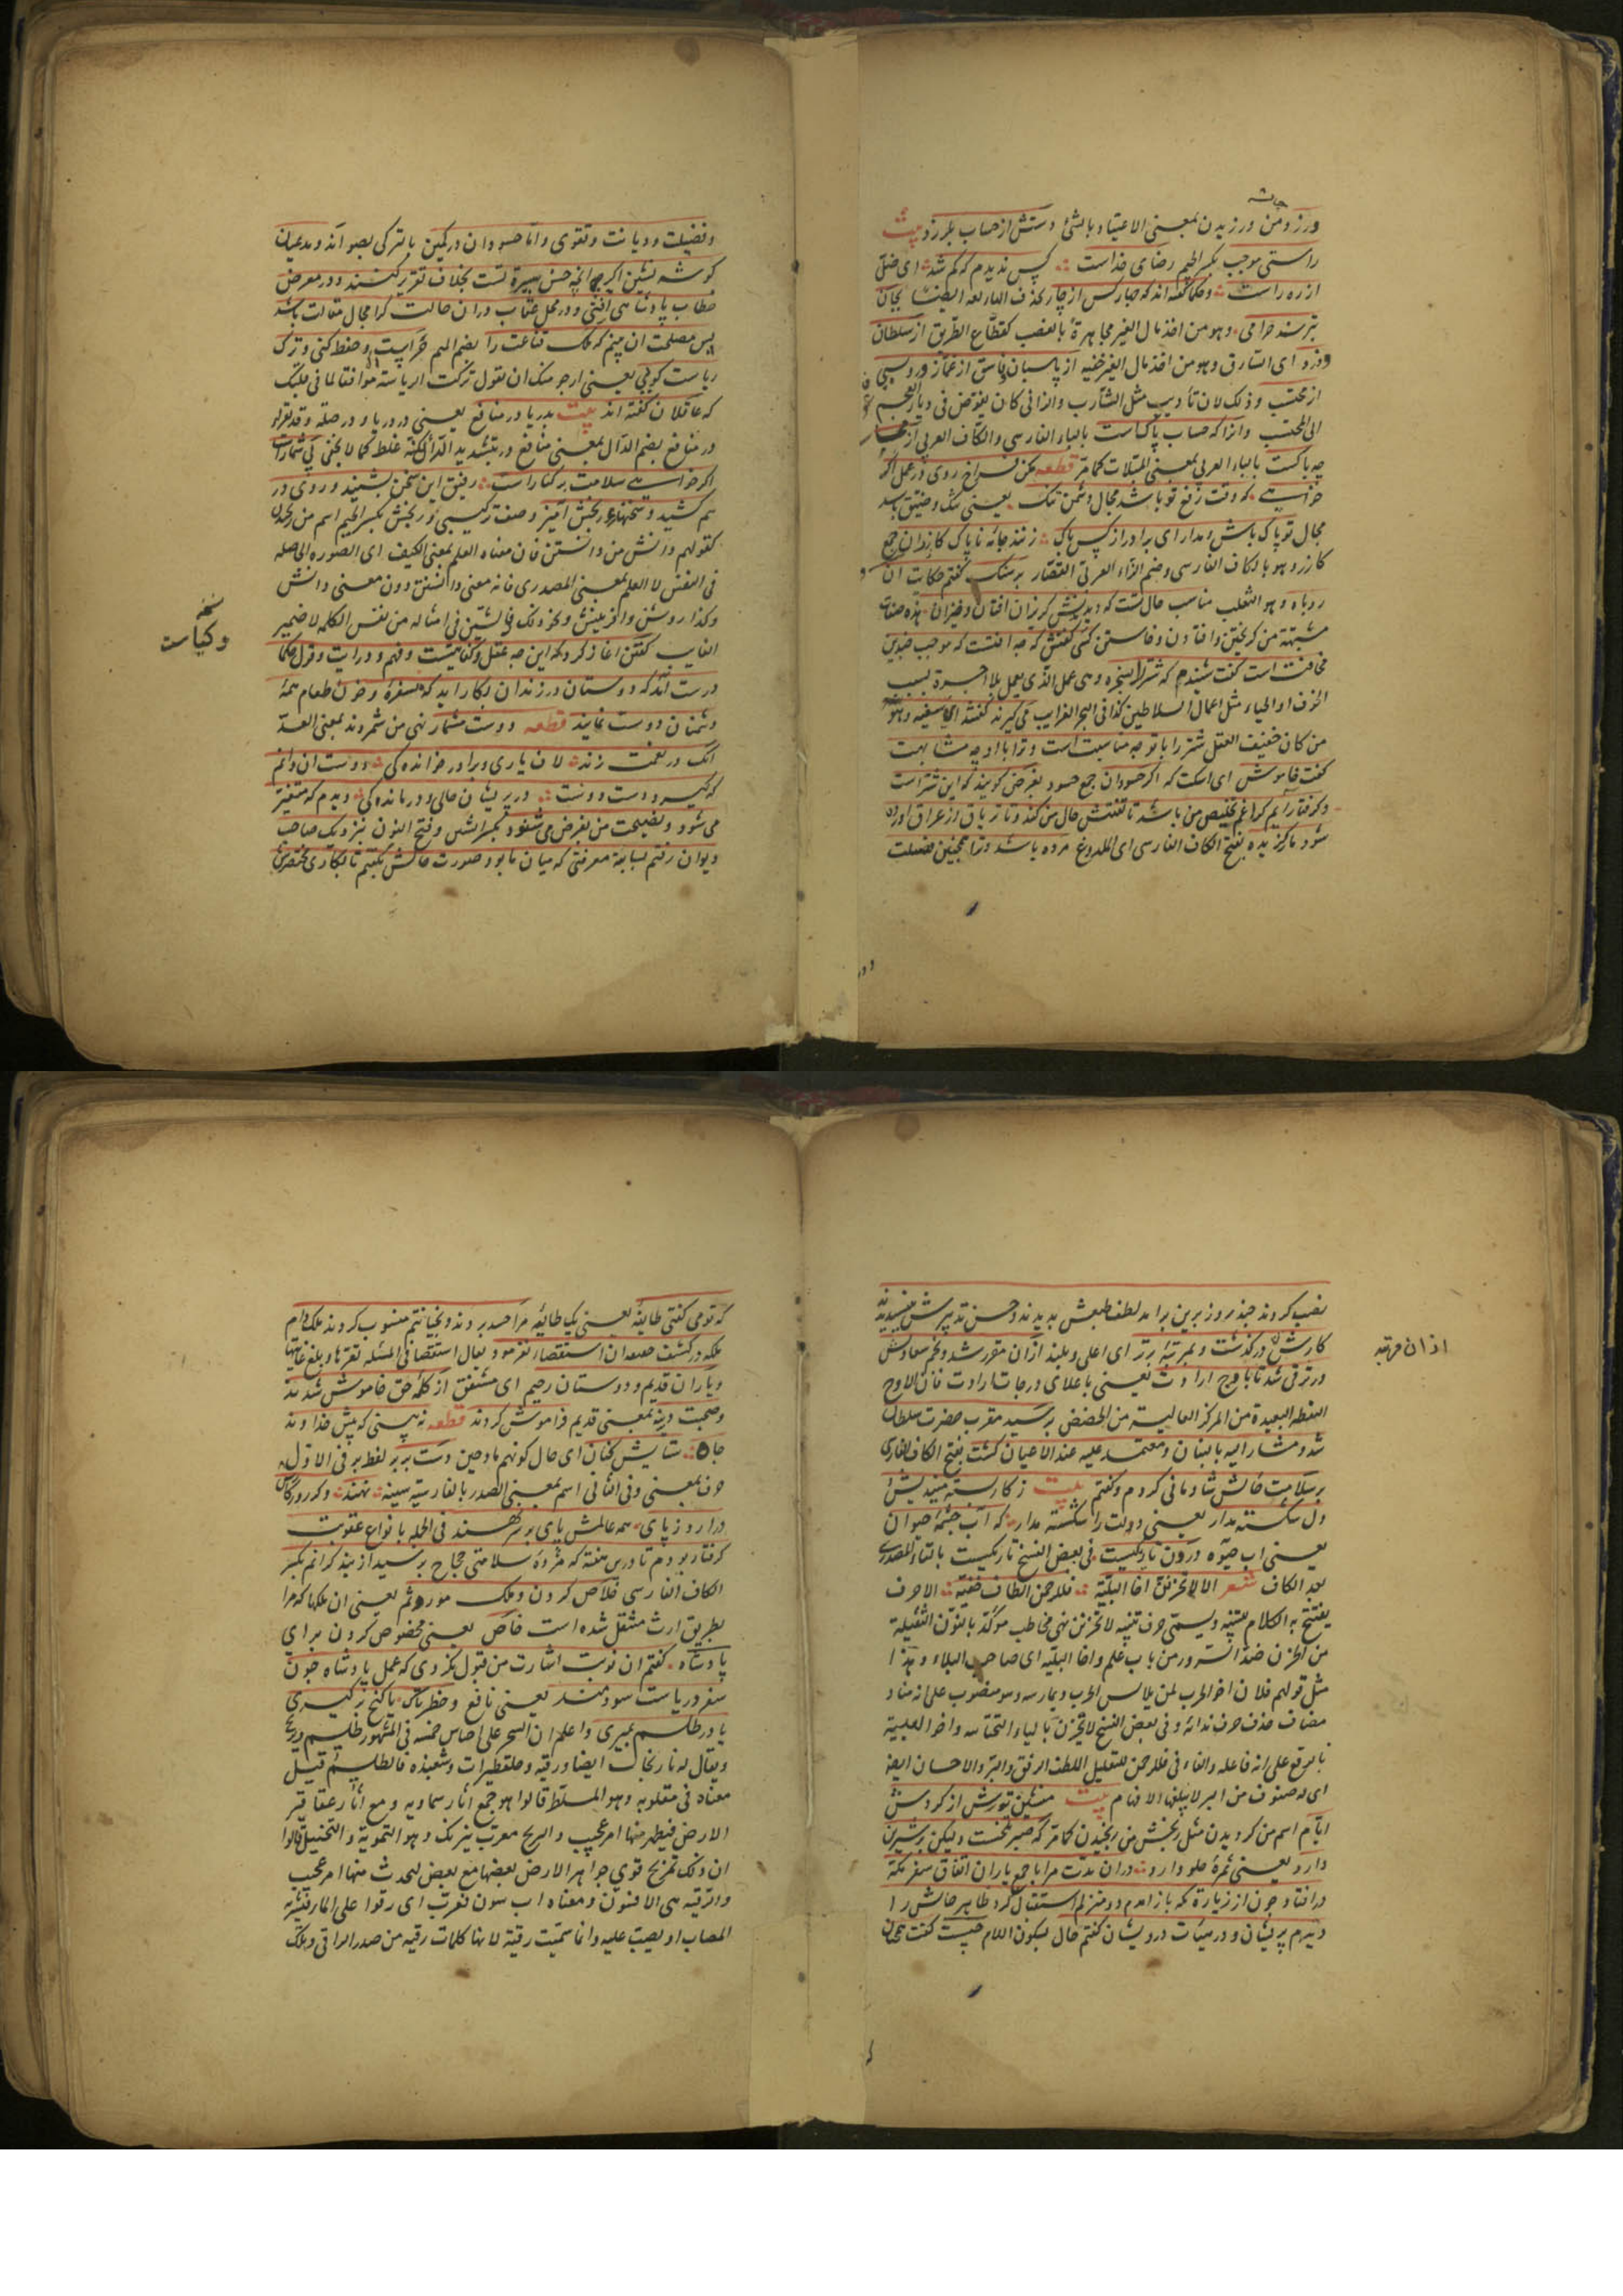 ورزد من ورزیدن بمعنی الاعتیاد بالشئ دستش از حساب بلرزد بیت
راستی موجب بکسر الجیم رضای خداست کس ندیدم که کم شد ای ضلّ
از ره راست وحکما گفته اند که چارکس از چار
بترسند حرامی وهو من اخذ مال الغیر مجاهرة بالغصب کقطّاع الطریق از سلطان
ودزد ای السارق وهو من اخذ مال الغیر خفیه از پاسبان وفاسق از غمّاز وروسپی
از محتسب وذلک لان تأدیب مثل الشارب والزانی کان یفوّض فی دیار العجم
الی المحتسب وانرا که حساب پاکست بالباء الفارسی والکاف العربی از محاسب
چه باکست بالباء العربی بمعنی المبالات کما مرّ قطعه مکن فراخ روی در عمل اگر
خواهی که وقت رفع تو باشد مجال دشمن تنک یعنی تنک وضیّق باشد
مجال تو پاک باش ومدار ای برادر از کس باک زنند جامهٔ ناپاک کازران جمع
کازر وهو بالکاف الفارسی وضم الزاء العربی القصّار بر سنک گفتم حکایت ان
روباه وهو الثعلب مناسب حال تست که دیدندش گریزان افتان وخیزان هذه صفات
مشبهة من گریختن وافتادن وخاستن کسی گفتش که چه افتست که موجب چندین
مخافتست است گفت شنیدم که شتر را بسخره وهی عمل الذی یعمل بلا اجرة بسبب
الخوف او الحیاء مثل اعمال السلاطین کذا فی البحر الغرایب می گیرند گفتند ای سفیه وهو
من کان خفیف العقل شتر را با تو چه مناسبت است وترا با او چه مشابهت
گفت خاموش ای اسکت که اگر حسودان جمع حسود بغرض گویند که این شتر است
وگرفتار ایم کرا غم تخلیص من باشد تا تفتیش حال من کند وتا تریاق از عراق اورده
شود مارگزیده بفتح الکاف الفارسی ای الملدوغ مرده باشد وترا همچنین فضلیت
وفضیلت ودیانت وتقوی وامّا حسودان در کمین بالترکی بصو اند ومدعیان
گوشه نشین اگر انچه حسن سیرة تست بخلاف تقریر کنند ودر معرض
خطاب پادشاهی افتی ودر محل عتاب در ان حالت کرا مجال مقالت باشد
پس مصلحت ان بینم که ملک قناعت را بضم المیم حراست وحفظ کنی وترک
ریاست گویی یعنی ارجو منک ان تقول ترکت الریاسة موافقا لما فی قلبک
که عاقلان گفته اند بیت بدریا در منافع یعنی در دریا ودر صلة
در منافع بضم الدال بمعنی منافع وبتشدید الراء غلط کما لا یخفی بی شمارست
اگر خواهی سلامت بر کنارست رفیق این سخن بشنید وروی در
هم کشید وسخنهای رنجش امیز وصف ترکیبی ورنجش بکسر الجیم اسم من رنجیدن
کقولهم دانش من دانستن فان معناه العلم بمعنی الکیف ای الصورة الحاصله
فی النفس لا العلم بمعنی المصدری فانه معنی دانستن دون معنی دانش
وکذا روش وافرینش ونحو ذلک فالشین فی امثاله من نفس الکلمه لا ضمیر
الغایب گفتن اغاز کرد که این چه عقل وکفایتست وفهم ودرایت وقول حکما
درست امد که دوستان در زندان بکار اید که بسفرهٔ وخوان طعام همهٔ
دشمنان دوست نمایند قطعه دوست مشمار نهی من شمردند بمعنی العدّ
انک در نعمت زند لاف یاری وبرادر خواندکی دوست ان دانم
که گیرد دست دوست در پریشان حالی ودرماندکی دیدم که متغیر
می شود ونصیحت من بغرض می شنود بکسر الشین وفتح النون بنزدیک صاحب
دیوان رفتم بسابقه معرفتی که میان ما بود وصورت حالش بگفتم تا بکاری مختصرش
نسخه
وکیاست
نصب کردند چند روز برین برامد لطف طبعش بدیدند وحسن تدبیرش بپسندیدند
کارش ازان درگذشت وبمرتبهٔ برتر ای اعلی وبلند ازان مقرر شد ونجم سعادتش
در ترقی شد تا باوج ارادت یعنی باعلای درجات ارادت فان الاوج
النقطه البعیدة من المرکز العالیه من الحضض برسید مقرب حضرت سلطان
شد ومشار الیه بالبنان ومعتمد علیه عند الاعیان گشت بفتح الکاف الفارسی
بر سلامت حالش شادمانی کردم وگفتم بیت ز کار بسته میندیش
ودل شکسته مدار یعنی دولت را شکسته مدار که آب چشمهٔ حیوان
یعنی اب حیوة درون تاریکیست فی بعض النسخ تاریکیست بالتاء المصدری
بعد الکاف شعر الا لا تحزنن اخا البلیّة فللرحمن الطاف خفیّة الا حرف
یفتتح به الکلام للتنبیه ویسمّی حرف تنبیه لا تحزنن نهی مخاطب مؤکد بالنون الثقیله
من الحزن ضد السرور من باب علم واخا البلیّه ای صاحب البلاء وهذا
مثل قولهم فلان اخو الحرب لمن یلابس الحرب ویمارسه وهو منصوب علی انه مناد
مضاف حذف حرف ندائه وفی بعض النسخ لا یحزن بالیاء التحتانیه واخو البلیة
بالرفع علی انه فاعله والفاء فی فللرحمن للتعلیل اللطف الرفق والبرّ والاحسان ایضا
ای له صنوف من البر لا یبلغها الافهام بیت منشین ترش از گردش
ایّام اسم من گردیدن مثل رنجش من رنجیدن کما مرّ که صبر تلخست ولیکن بر شیرین
دارد یعنی ثمرهٔ حلو دارد در ان مدت مرا با جمع یاران اتفاق سفر مکه
در افتاد چون از زیارة مکه باز امدم دو منزلم استقبال کرد ظاهر حالش را
دیدم پریشان ودر هیئات درویشان گفتم حال بسکون اللام چیست گفت همچنان
اذان مرتبه
که تو می گفتی طایفهٔ یعنی یک طایفهٔ مرا حسد بردند وبخیانتم منسوب کردند ملک دام
ملکه در کشف حقیقت ان استقصاء نفرمود یقال استقصا فی المسئله تقرّبها وبلغ غایتها
ویاران قدیم ودوستان رحیم ای مشفق از کلمهٔ حق خاموش شدند
وصحبت دیرینه بمعنی قدیم فراموش کردند قطعه نه بینی که پیش خداوند
جاه ستایش کنان ای حال کونهم مادحین دست بر بر لفظ بر فی الاول
حرف بمعنی وفی الثانی اسم بمعنی الصدر بالفارسیه سینه نهند وگر روزگارش
درارد ز پای همه عالمش پای بر سر نهند فی الجمله بانواع عقوبت
گرفتار بودم تا درین هفته که مژدهٔ سلامتی حجاج برسید از بند گرانم بکسر
الکاف الفارسی خلاص کردن وملک موروثم یعنی ان ملکها که مرا
بطریق ارث منتقل شده است خاص یعنی مخصوص کردن برای
پادشاه گفتم ان نوبت اشارت من قبول نکردی که عمل پادشاه چون
سفر دریاست سودمند یعنی نافع وخطرناک یا گنج برگیری
یا در طلسم بمیری واعلم ان السحر علی اجناس خمسه فی المشهور طلسم ونیرنج
ویقال له نارنجات ایضا ورقیه وحلقطیرات وشعبذه فالطلسم قیل
معناه فی مقلوبه وهو المسلّط قالوا هو جمع اثار سماویه ومع اثار عقاقیر
الارض فیظهر منها امر عجیب والنیرنج معرّب نیرنک وهو التمویه والتخییل قالوا
ان ذلک تمزیج قوی جواهر الارض بعضها مع بعض لیحدث منها امر عجیب
والرقیه هی الافسون ومعناه اب سون فعرّب ای رقوا علی الماء
المصاب او یصب علیه وانما سمّیت رقیة لانها کلمات رقیه من صدر الراقی